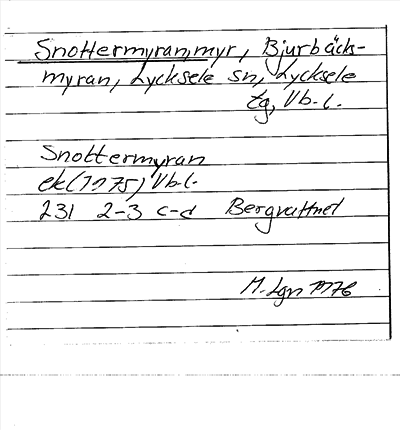 Snottermyran, myr, Bjurbäck-
myran, Lycksele sn, Lycksele
tg, Vb. l.
Snottermyran
ek (1975) Vb. l.
231 2-3 c-d Bergvattnet
M. Lgn 1976